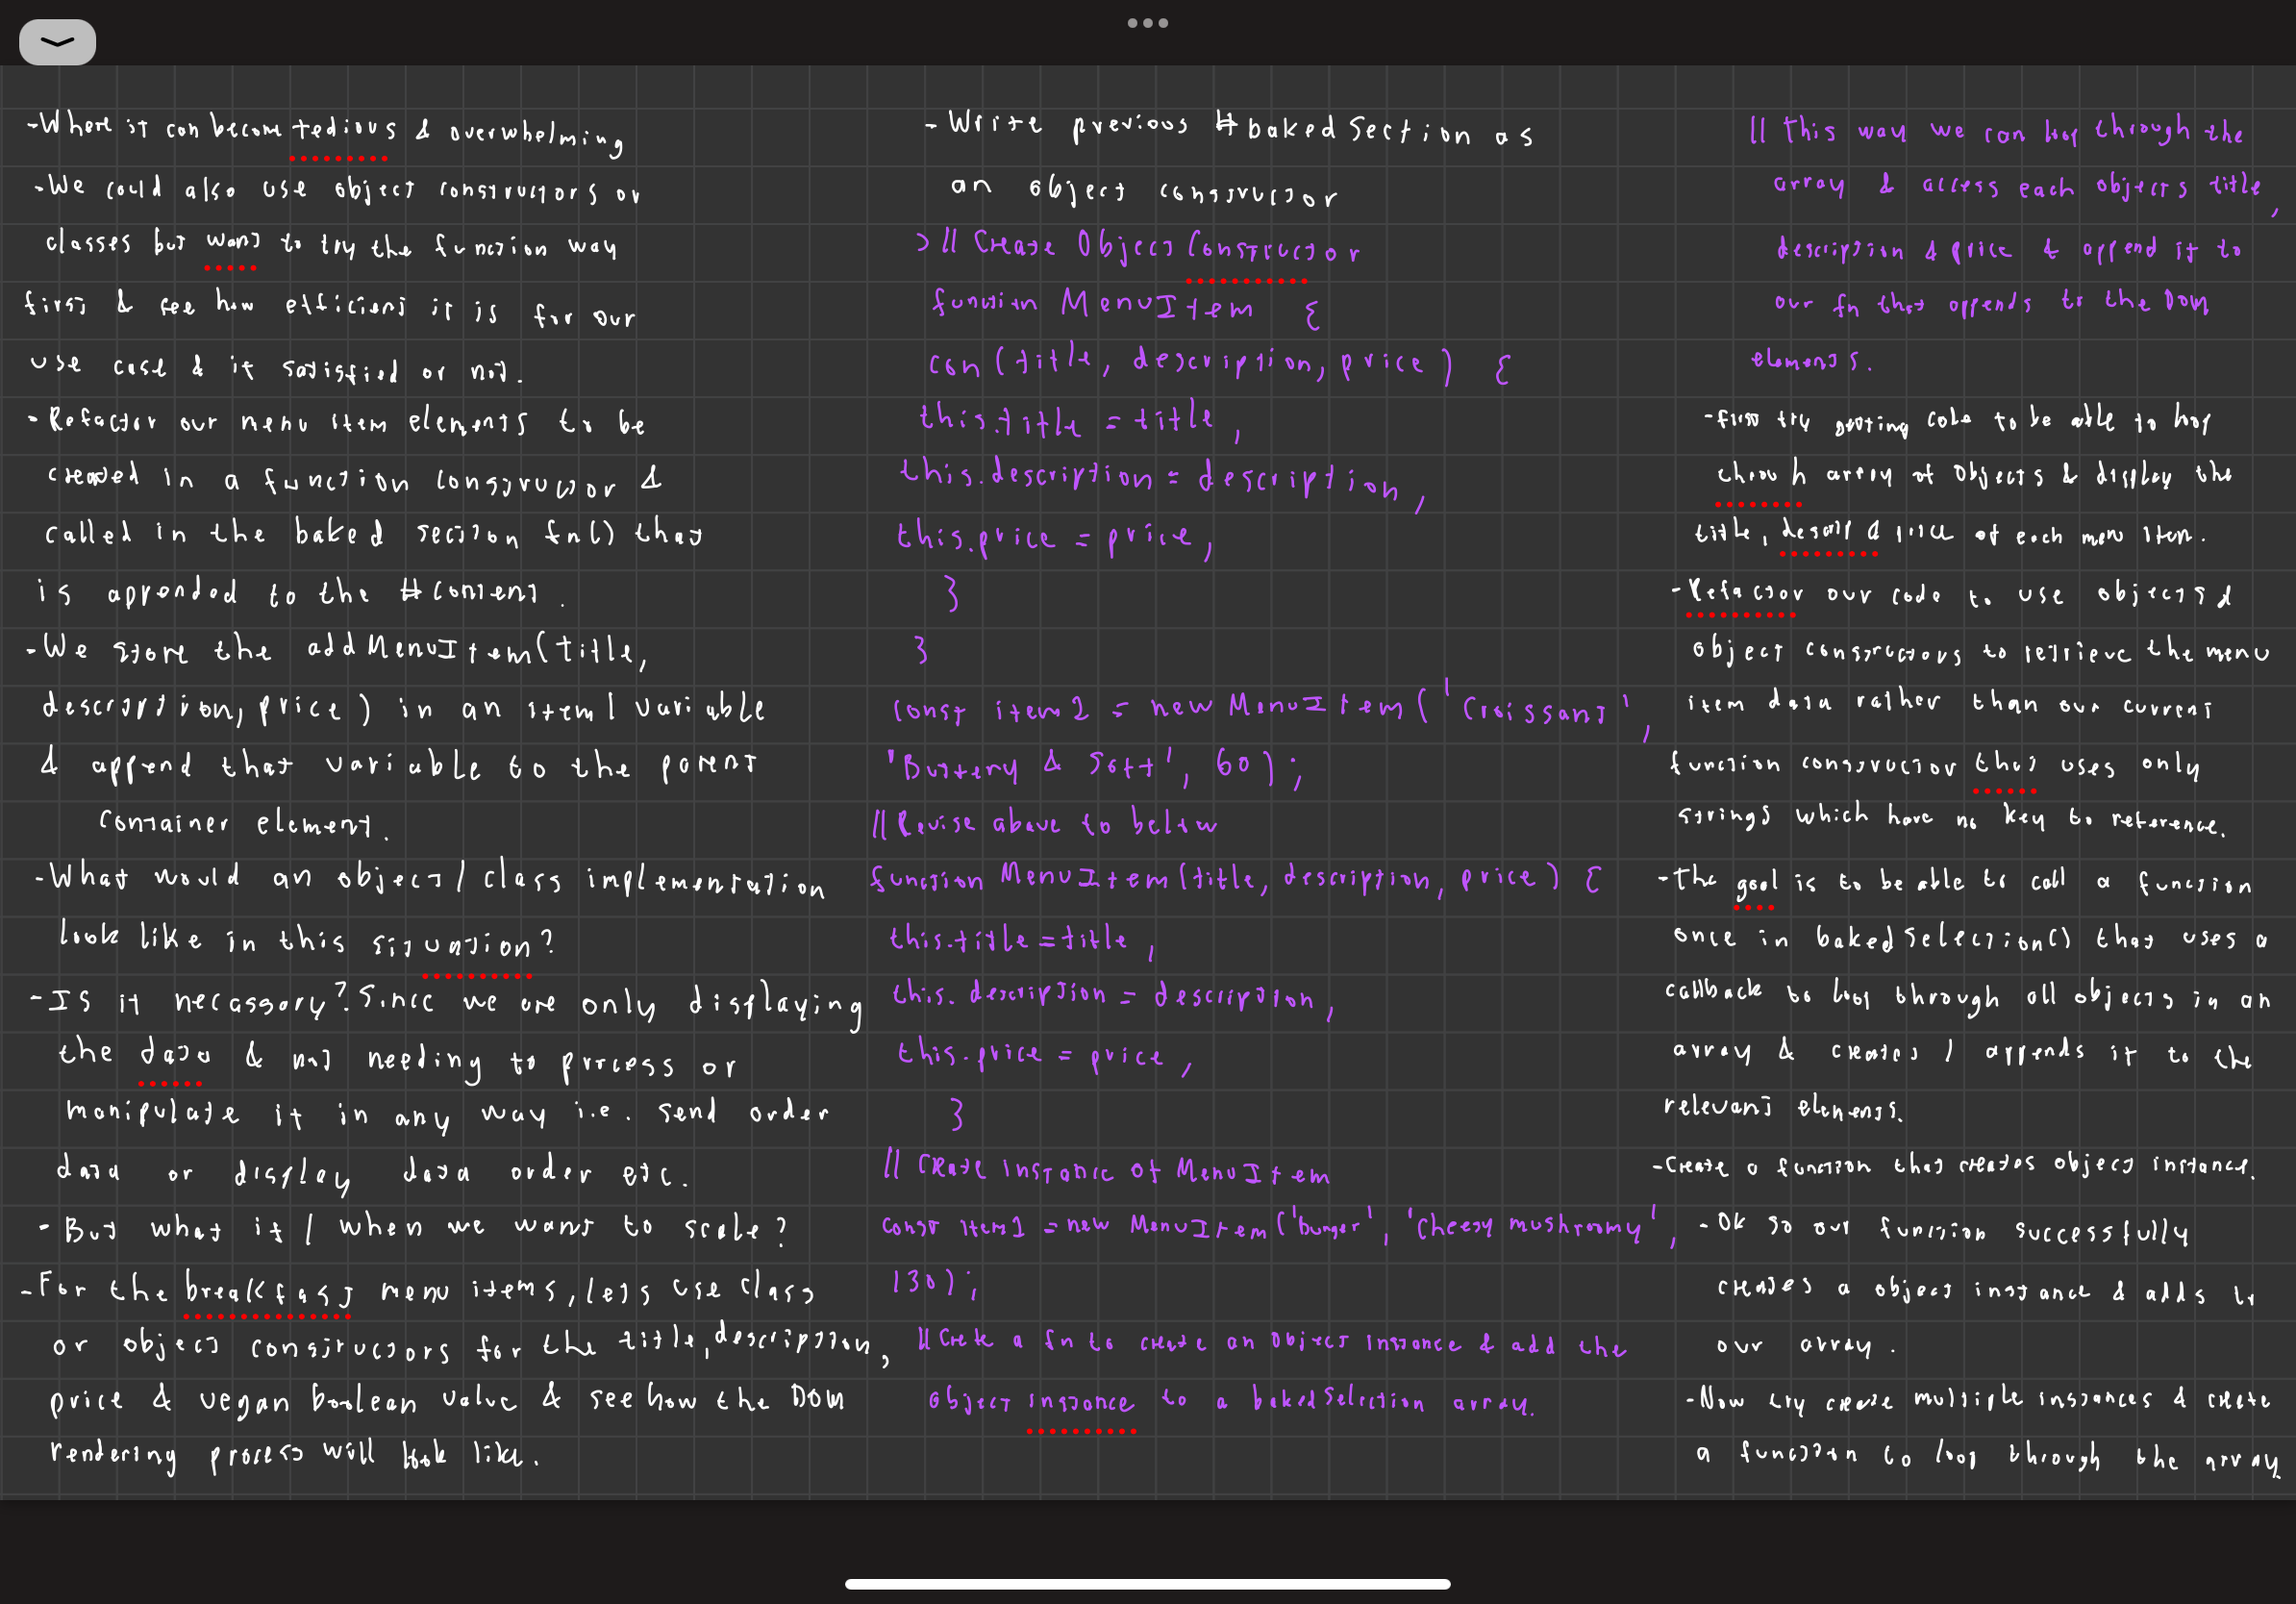 -Where it can become tedious & overwhelming
-We could also use object constructors or
classes but want to try the function way
first & see how efficient it is for our
use case & if satisfied or not.
-Refactor our menu item elements to be
created in a function constructor &
called in the baked section fn() that
is appended to the #content.
-We store the addMenuItem(title,
description, price) in an item1 variable
& append that variable to the parent
container element.
-What would an object/class implementation
look like in this situation?
-Is it necassary? Since we are only displaying
the data & not needing to process or
manipulate it in any way i.e. send order
data or display data order etc.
-But what if/when we want to scale?
-For the breakfast menu items, lets use class
or object constructors for the title, description,
price & vegan boolean value & see how the DOM
rendering process will look like.
-Write previous #bakedSection as
an object constructor
>// Create Object Constructor
function MenuItem {
con(title, description, price) {
this.title = title,
this.description = description,
this.price = price,
}
}
const item2 = new MenuItem('Croissant',
'Buttery & Soft', 60);
//Revise above to below
function MenuItem(title, description, price) {
this.title = title,
this.description = description,
this.price = price,
}
// Create instance of MenuItem
const item1 = new MenuItem('burger', 'Cheesy mushroomy',
130);
//Crete a fn to create an object instance & add the
object instance to a bakedSelection array.
// This way we can loop through the
array & access each objects title,
description & price & append it to
our fn that appends to the DOM
elements.
-First try getting code to be able to loop
throuh array of Objects & display the
title, descrip & price of each menu item.
-Refactor our code to use objects &
object constructors to retrieve the menu
item data rather than our current
function constructor that uses only
strings which have no key to reference.
-The goal is to be able to call a function
once in bakedSelection() that uses a
callback to loop through all objects in an
array & creates/appends it to the
relevant elements.
-Create a function that creates object instance.
-Ok so our function successfully
creates a object instance & adds to
our array.
-Now try create multiple instances & crete
a function to loop through the array.